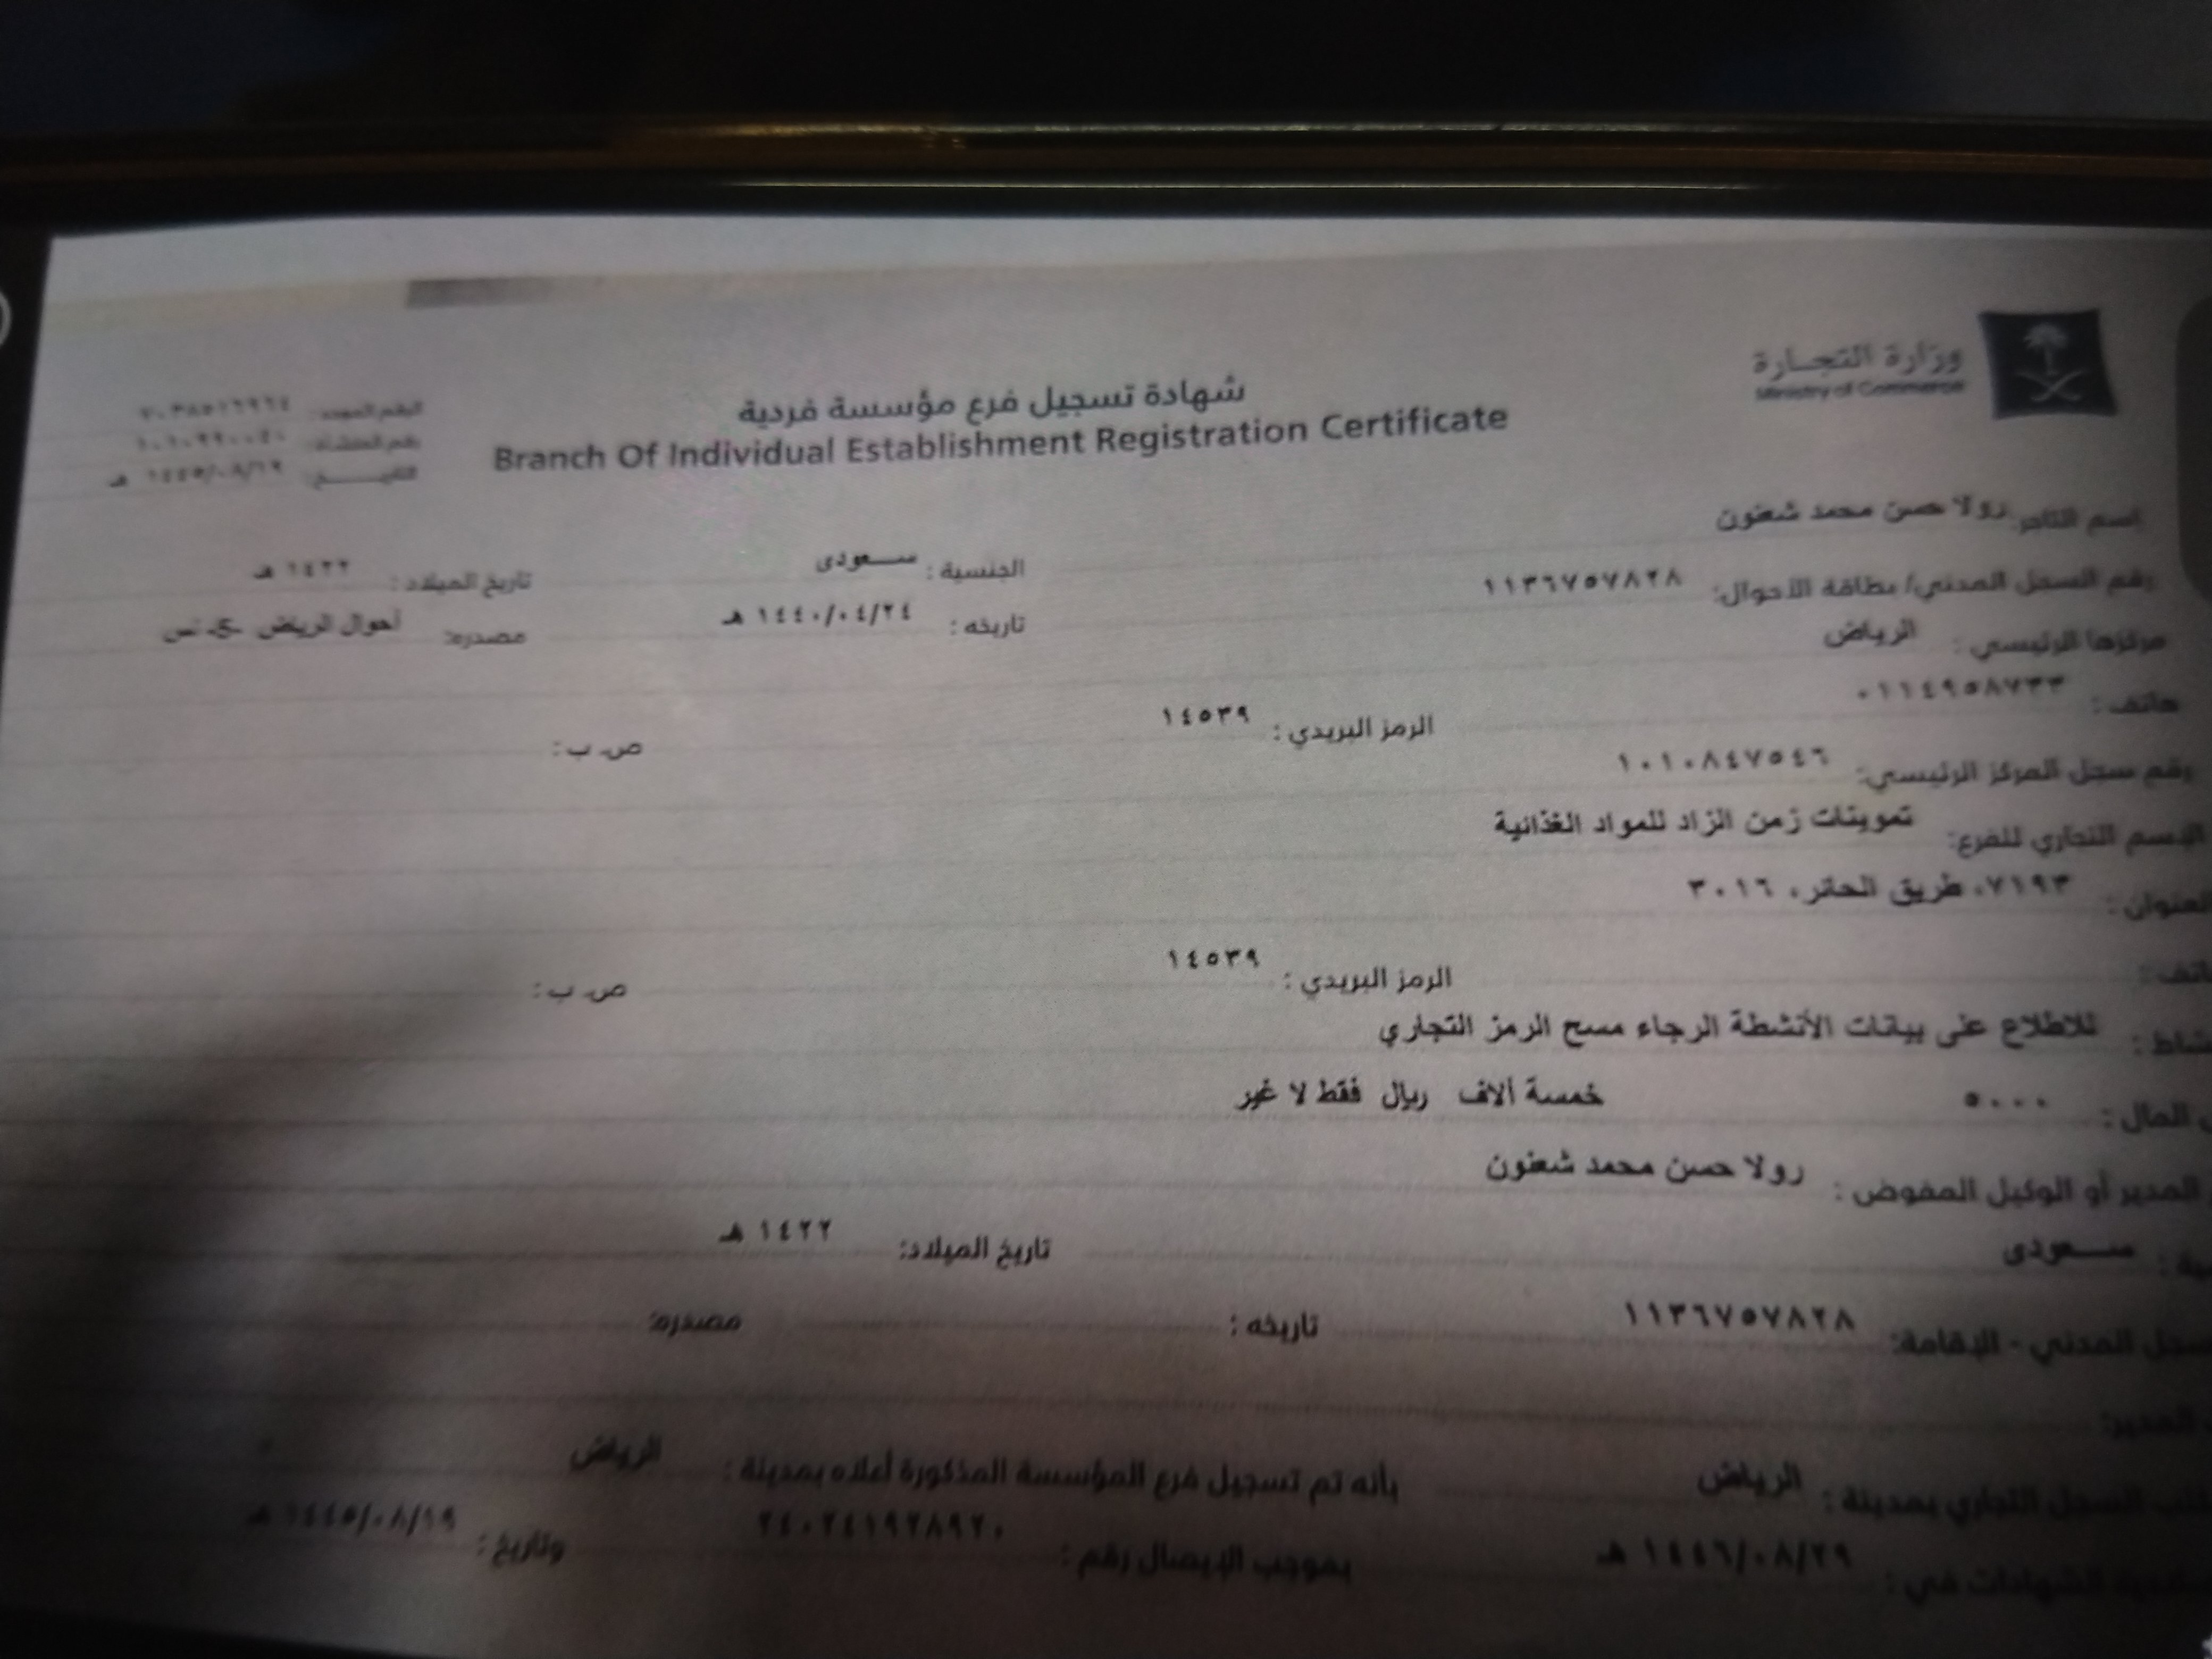 وزارة التجارة
Ministry of Commerce
شهادة تسجيل فرع مؤسسة فردية
Branch Of Individual Establishment Registration Certificate
الرقم الموحد:
رقم المنشأة:
التاريخ: ١٤٤٥/٠٨/١٩ هـ
اسم التاجر: رولا حسن محمد شعنون
الجنسية : سعودى
تاريخ الميلاد : ١٤٢٢ هـ
رقم السجل المدني/ بطاقة الأحوال: ١١٣٦٧٥٧٨٢٨
تاريخه : ١٤٤٠/٠٤/٢٤ هـ
مصدره: أحوال الرياض
مركزها الرئيسي : الرياض
هاتف : ٠١١٤٩٥٨٧٣٣
الرمز البريدي : ١٤٥٣٩
ص. ب :
رقم سجل المركز الرئيسي: ١٠١٠٨٤٧٥٤٦
الإسم التجاري للفرع: تموينات زمن الزاد للمواد الغذائية
العنوان : ٧١٩٣، طريق الحائر، ٣٠١٦
الرمز البريدي : ١٤٥٣٩
ص. ب :
للاطلاع على بيانات الأنشطة الرجاء مسح الرمز التجاري
المال : ٥٠٠٠ خمسة ألاف ريال فقط لا غير
المدير أو الوكيل المفوض : رولا حسن محمد شعنون
سعودى
تاريخ الميلاد: ١٤٢٢ هـ
المدني - الإقامة: ١١٣٦٧٥٧٨٢٨
تاريخه :
مصدره:
المدير:
السجل التجاري بمدينة : الرياض
بأنه تم تسجيل فرع المؤسسة المذكورة أعلاه بمدينة : الرياض
الشهادات في : ١٤٤٦/٠٨/٢٩ هـ
بموجب الإيصال رقم : ٢٤٠٢٤١٩٢٨٩٢٠
وتاريخ : ١٤٤٥/٠٨/١٩ هـ